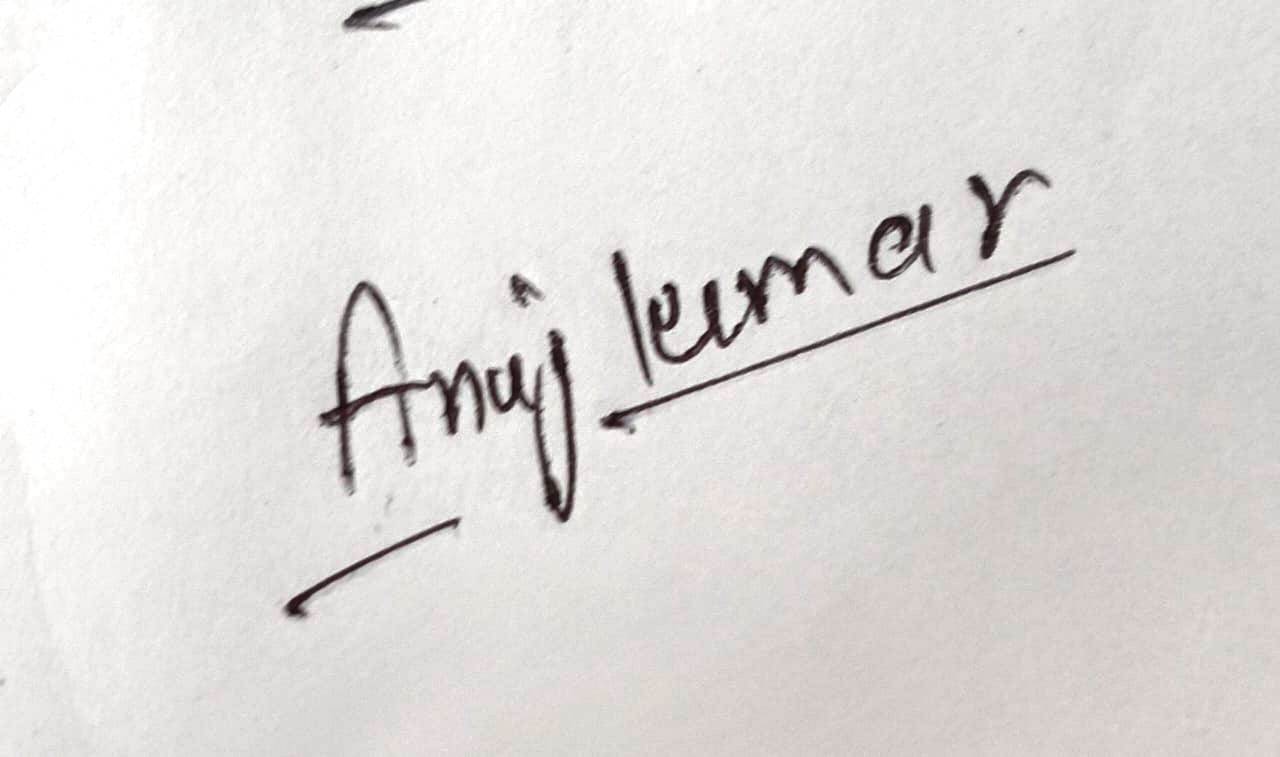 Anuj kumar